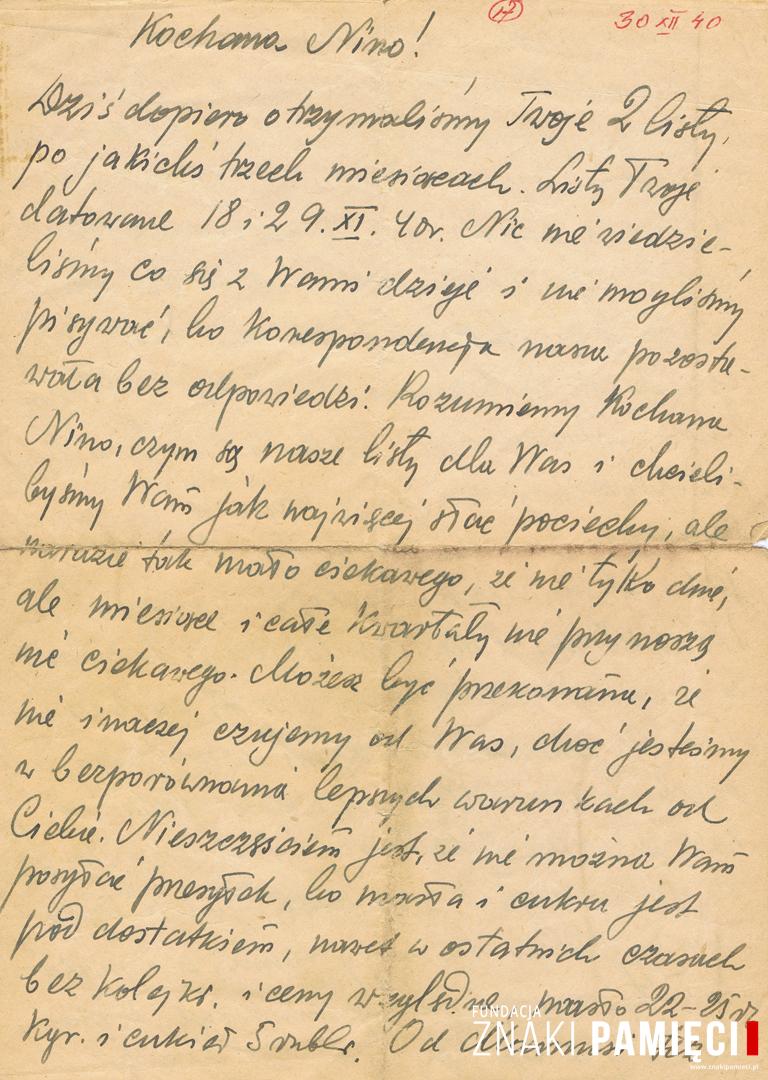 17
30 XII 40
Kochana Nino!
Dziś dopiero otrzymaliśmy Twoje 2 listy,
po jakichś trzech miesiącach. Listy Twoje
datowane 18 i 29. XI. 40r. Nic nie wiedzie-
liśmy co się z Wami dzieje i nie mogliśmy
pisywać, bo korespondencja nasza pozosta-
wała bez odpowiedzi. Rozumiemy Kochana
Nino, czym są nasze listy dla Was i chcieli-
byśmy Wam jak najwięcej słać pociechy, ale
narazie tak mało ciekawego, że nie tylko dnie,
ale miesiące i całe kwartały nie przynoszą
nic ciekawego. Możesz być przekonana, że
nie inaczej czujemy od Was, choć jesteśmy
w bezporównania lepszych warunkach od
Ciebie. Nieszczęściem jest, że nie można Wam
posyłać przesyłek, bo masła i cukru jest
pod dostatkiem, nawet w ostatnich czasach
bez kolejki. i ceny względne, masło 22-25
kgr. i cukier 5 rubli. Od
FUNDACJA
ZNAKI PAMIĘCI
www.znakipamieci.pl